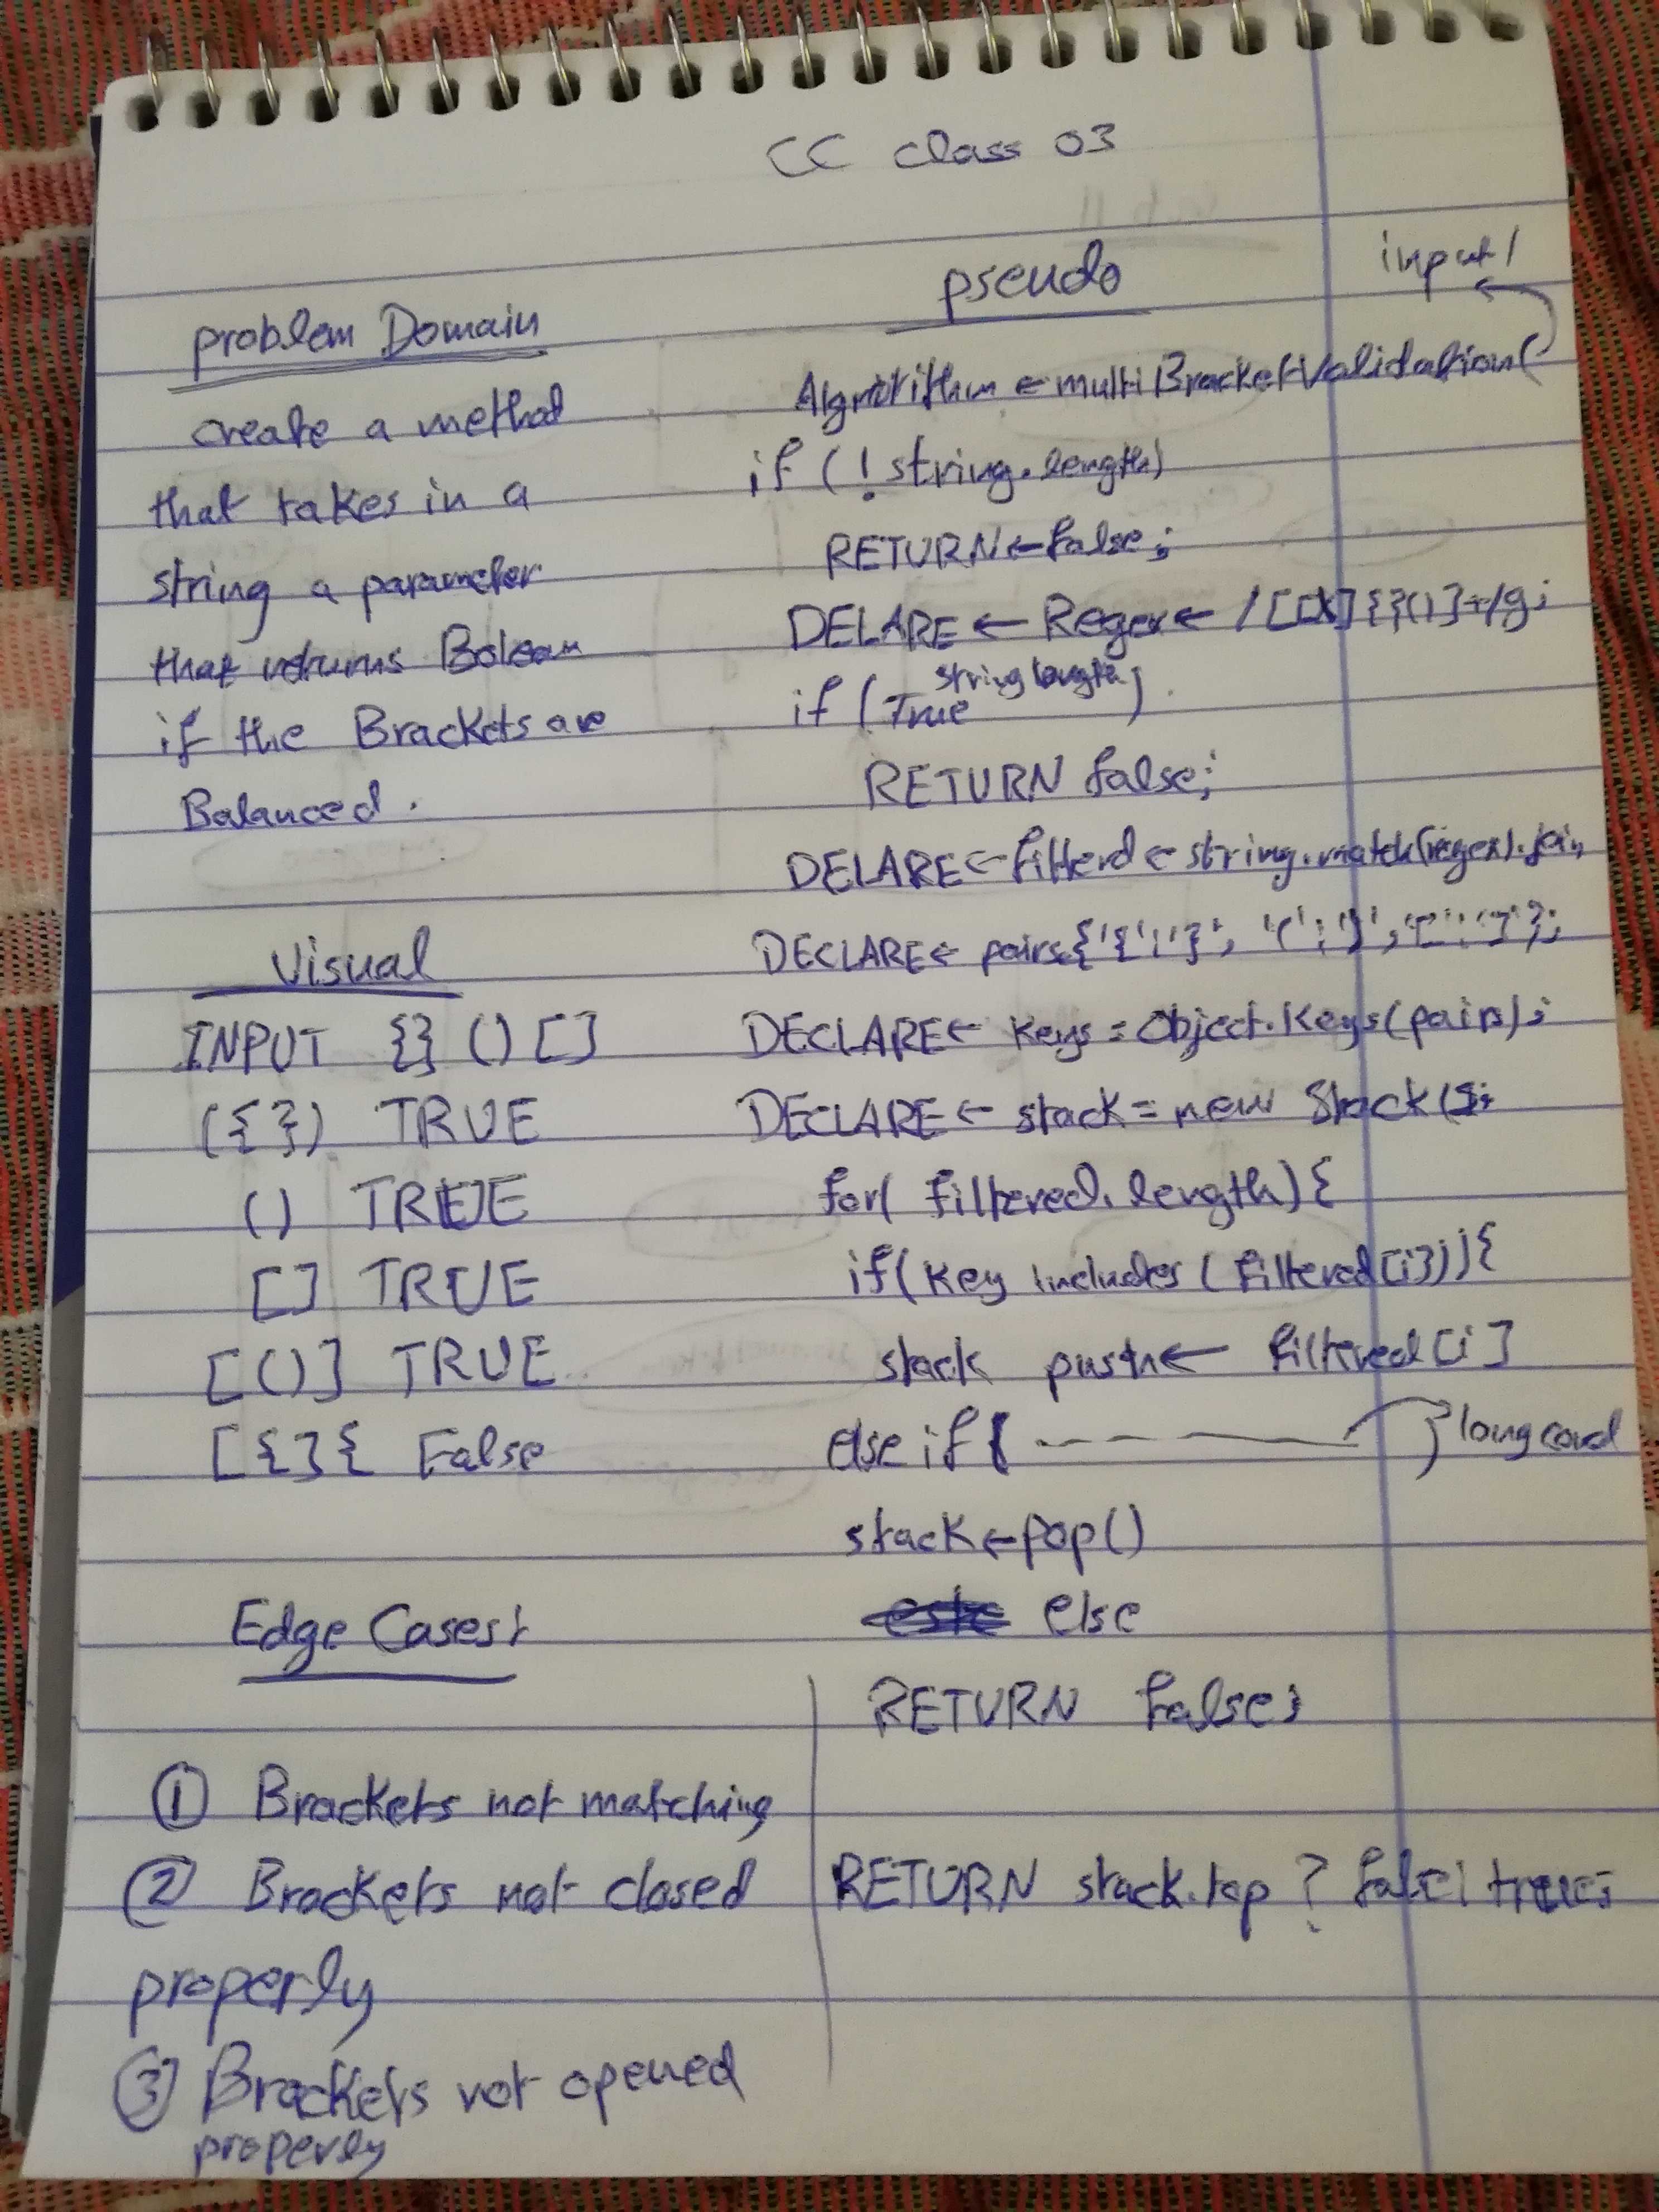 CC class 03
problem Domain
create a method
that takes in a
string a parameter
that returns Bolean
if the Brackets are
Balanced.
Visual
INPUT {} () []
({}) TRUE
() TRUE
[] TRUE
[()] TRUE
[{}{ False
Edge Cases:
① Brackets not matching
② Brackets not closed
properly
③ Brackets not opened
properly
pseudo
input)
Algorithm ← multiBracketValidation(
if (! string.length)
RETURN ← false;
DELARE ← Regex ←
string length
if (True )
RETURN false;
DELARE ← filterd ← string.match(regex).join
DECLARE ← pairs
DECLARE ← Keys = Object.Keys(pairs);
DECLARE ← stack = new Stack();
for( filtered.length){
if(Key includes (filtered[i])){
stack push ← filtered[i]
else if( } long cond
stack ← pop()
else
RETURN false;
RETURN stack.top ? false: true;